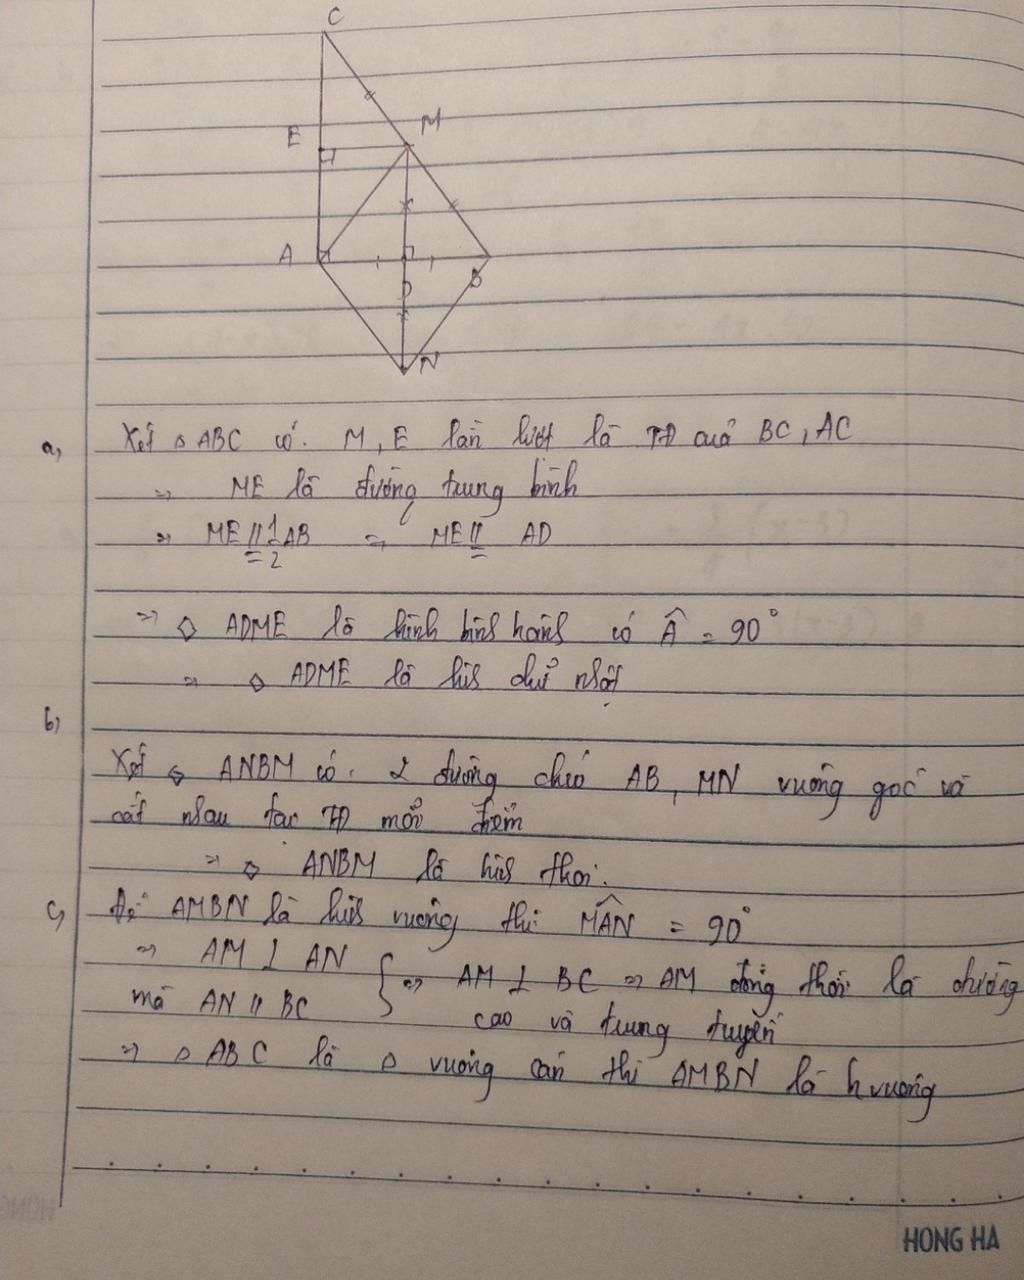 C
M
E
A
B
D
N
a, Xét △ ABC có. M, E lần lượt là TĐ của BC, AC
=> ME là đường trung bình
=> ME // = 1/2 AB => ME // = AD
=> ◇ ADME là hình bình hành có Â = 90°
=> ◇ ADME là hình chữ nhật
b,
Xét ◇ ANBM có. 2 đường chéo AB, MN vuông góc và
cắt nhau tại TĐ mỗi điểm
=> ◇ ANBM là hình thoi.
c, Để AMBN là hình vuông thì MAN = 90°
=> AM ⊥ AN } => AM ⊥ BC => AM đồng thời là đường
mà AN // BC cao và trung tuyến
=> △ ABC là △ vuông cân thì AMBN là h vuông
HONG HA